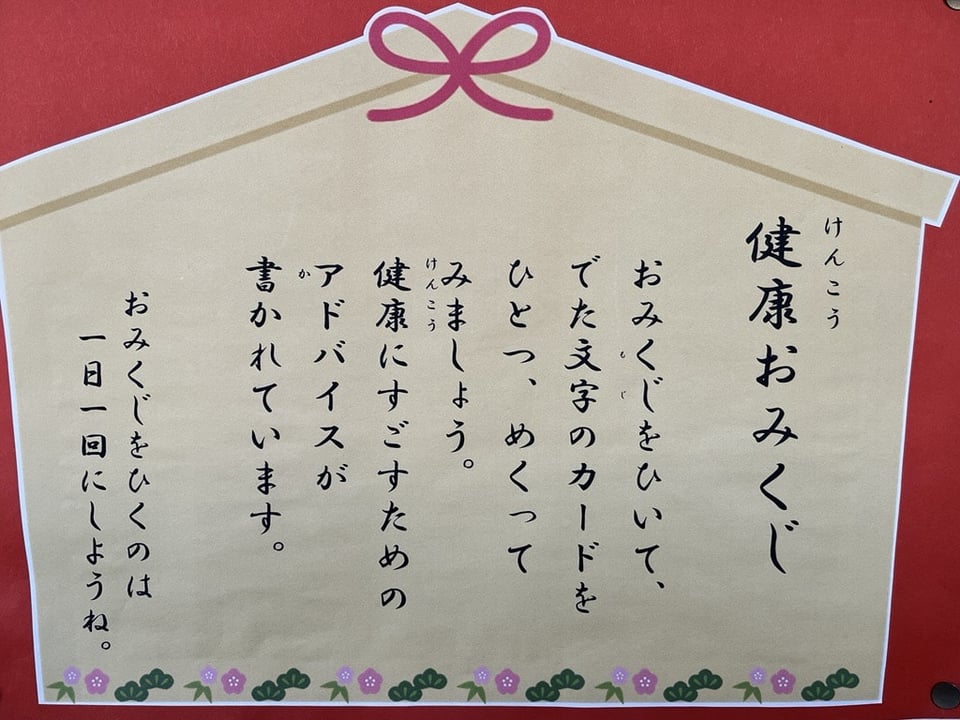 健康おみくじ
けんこう
おみくじをひいて、
でた文字のカードを
もじ
ひとつ、めくって
みましょう。
健康にすごすための
けんこう
アドバイスが
書かれています。
か
おみくじをひくのは
一日一回にしようね。